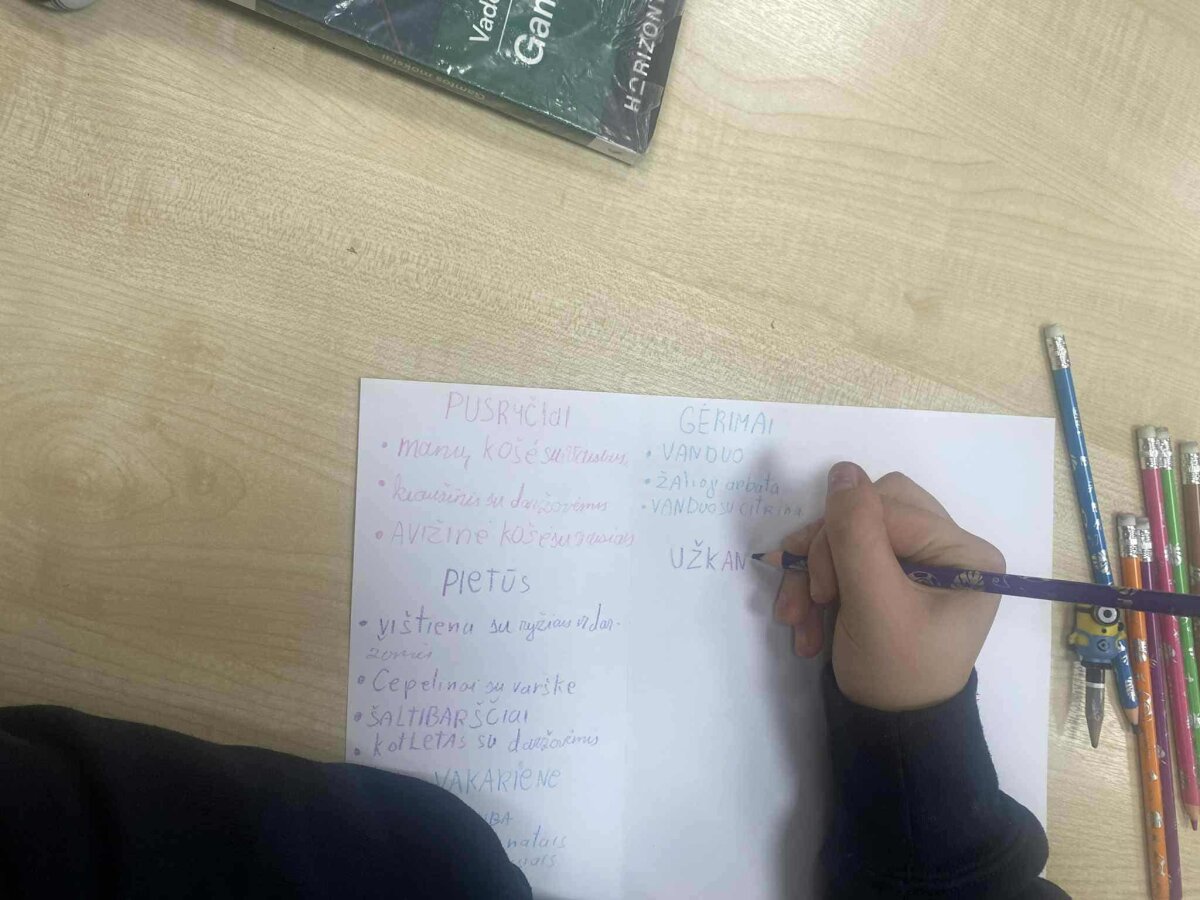 Vado
Gam
HORIZONT
Gamtos mokslai
PUSRYČIAI
• manų košė su
• kiaušinis su daržovėmis
• AVIŽINĖ KOŠĖ su
PIETŪS
• vištiena su ryžiais ir dar-
žovėmis
• Cepelinai su varške
• ŠALTIBARŠČIAI
• KOTLETAS su daržovėmis
VAKARIENE
UBA
natais
GĖRIMAI
• VANDUO
• ŽAlioj arbata
• VANDUO SU CITRINA
UŽKAN